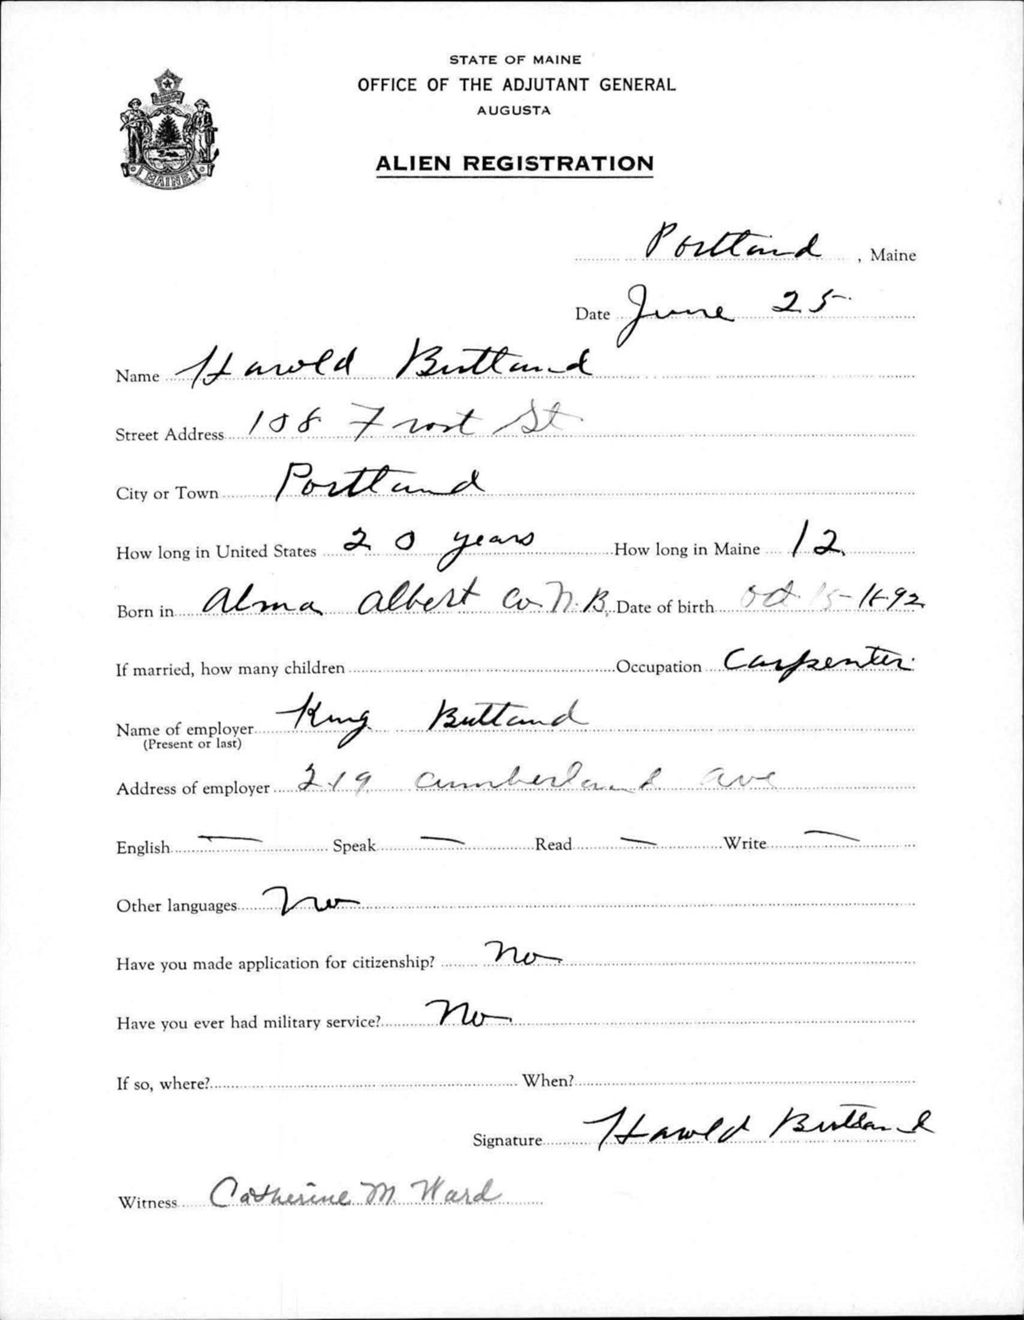 STATE OF MAINE
OFFICE OF THE ADJUTANT GENERAL
AUGUSTA
ALIEN REGISTRATION
MAINE
Portland, Maine
Date June 25
Name Harold Butland
Street Address 108 Frost St
City or Town Portland
How long in United States 20 years How long in Maine 12
Born in Alma Albert Co N.B. Date of birth Oct 15-1892
If married, how many children Occupation Carpenter
Name of employer King Butland
(Present or last)
Address of employer 219 Cumberland Ave
English — Speak — Read — Write —
Other languages No
Have you made application for citizenship? No
Have you ever had military service? No
If so, where? When?
Signature Harold Butland
Witness Catherine M. Ward